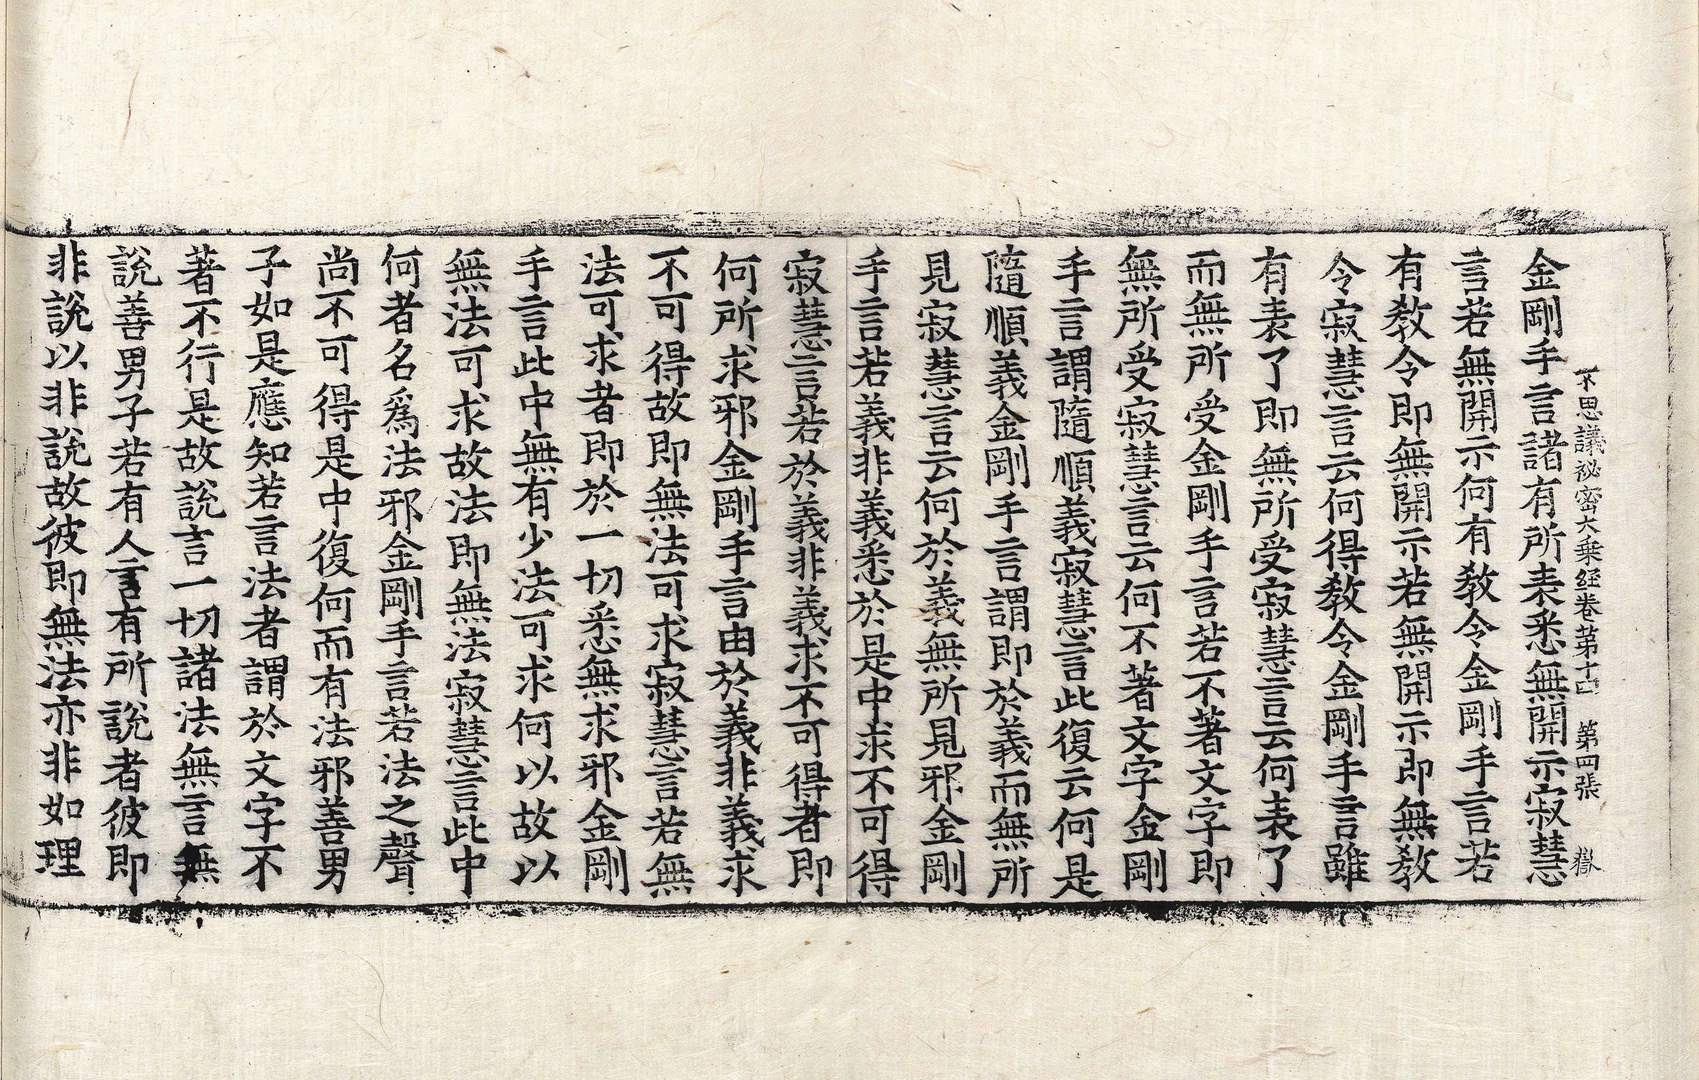 不思議祕密大乘經卷第十四　第四張　嶽
金剛手言諸有所表悉無開示寂慧
言若無開示何有敎令金剛手言若
有敎令即無開示若無開示即無敎
令寂慧言云何得敎令金剛手言雖
有表了即無所受寂慧言云何表了
而無所受金剛手言若不著文字即
無所受寂慧言云何不著文字金剛
手言謂隨順義寂慧言此復云何是
隨順義金剛手言謂即於義而無所
見寂慧言云何於義無所見邪金剛
手言若義非義悉於是中求不可得
寂慧言若於義非義求不可得者即
何所求邪金剛手言由於義非義求
不可得故即無法可求寂慧言若無
法可求者即於一切悉無求邪金剛
手言此中無有少法可求何以故以
無法可求故法即無法寂慧言此中
何者名爲法邪金剛手言若法之聲
尚不可得是中復何而有法邪善男
子如是應知若言法者謂於文字不
著不行是故說言一切諸法無言無
說善男子若有人言有所說者彼即
非說以非說故彼即無法亦非如理